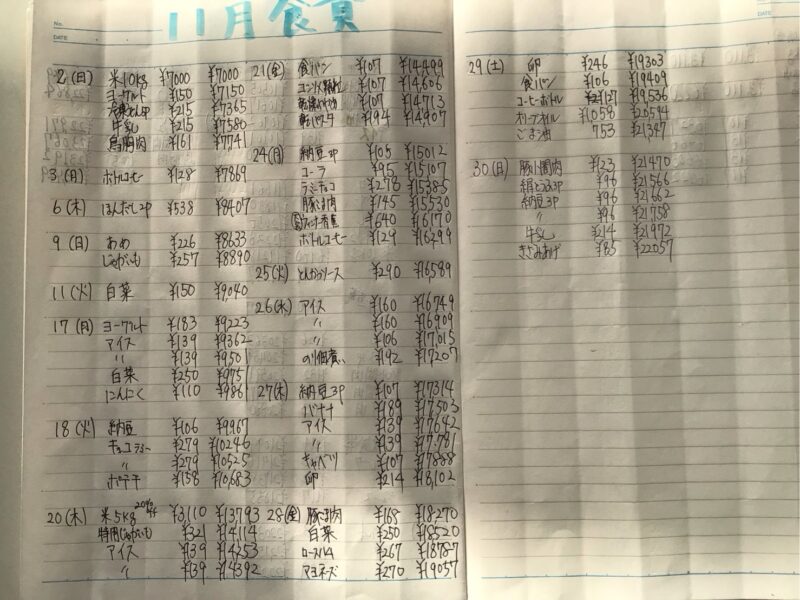 11月食費
No.
DATE
2(日) 米10kg ¥7000 ¥7000
ヨーグルト ¥150 ¥7150
¥215 ¥7365
牛乳 ¥215 ¥7580
鳥胸肉 ¥161 ¥7741
3(月) ボトルコーヒー ¥128 ¥7869
6(木) ほんだし2P ¥538 ¥8407
9(日) あめ ¥226 ¥8633
じゃがいも ¥257 ¥8890
11(火) 白菜 ¥150 ¥9,040
17(月) ヨーグルト ¥183 ¥9223
アイス ¥139 ¥9362
〃 ¥139 ¥9501
白菜 ¥250 ¥9751
にんにく ¥110 ¥9861
18(火) 納豆 ¥106 ¥9967
¥279 ¥10246
〃 ¥279 ¥10525
ポテチ ¥158 ¥10,683
20(木) 米5kg ¥3,110 ¥13,793
¥321 ¥14114
アイス ¥139 ¥14253
〃 ¥139 ¥14392
21(金) 食パン ¥107 ¥14,499
¥107 ¥14606
¥107 ¥14713
¥194 ¥14,907
24(月) 納豆3P ¥105 ¥15012
コーラ ¥95 ¥15107
ラミーチョコ ¥278 ¥15385
豚こま肉 ¥145 ¥15530
¥640 ¥16170
ボトルコーヒー ¥129 ¥16299
25(火) とんかつソース ¥290 ¥16589
26(水) アイス ¥160 ¥16749
〃 ¥160 ¥16909
〃 ¥106 ¥17,015
のり佃煮 ¥192 ¥17207
27(木) 納豆3P ¥107 ¥17314
バナナ ¥189 ¥17503
アイス ¥139 ¥17642
〃 ¥139 ¥17,781
キャベツ ¥107 ¥17888
卵 ¥214 ¥18,102
28(金) 豚こま肉 ¥168 ¥18270
白菜 ¥250 ¥18520
ロースハム ¥267 ¥18787
マヨネーズ ¥270 ¥19057
DATE
29(土) 卵 ¥246 ¥19303
食パン ¥106 ¥19409
コーヒーボトル ¥127 ¥19,536
オリーブオイル ¥1058 ¥20594
ごま油 753 ¥21347
30(日) 豚小間肉 ¥123 ¥21470
絹とうふ3P ¥96 ¥21566
納豆3P ¥96 ¥21662
〃 ¥96 ¥21758
牛乳 ¥214 ¥21972
きざみあげ ¥85 ¥22057